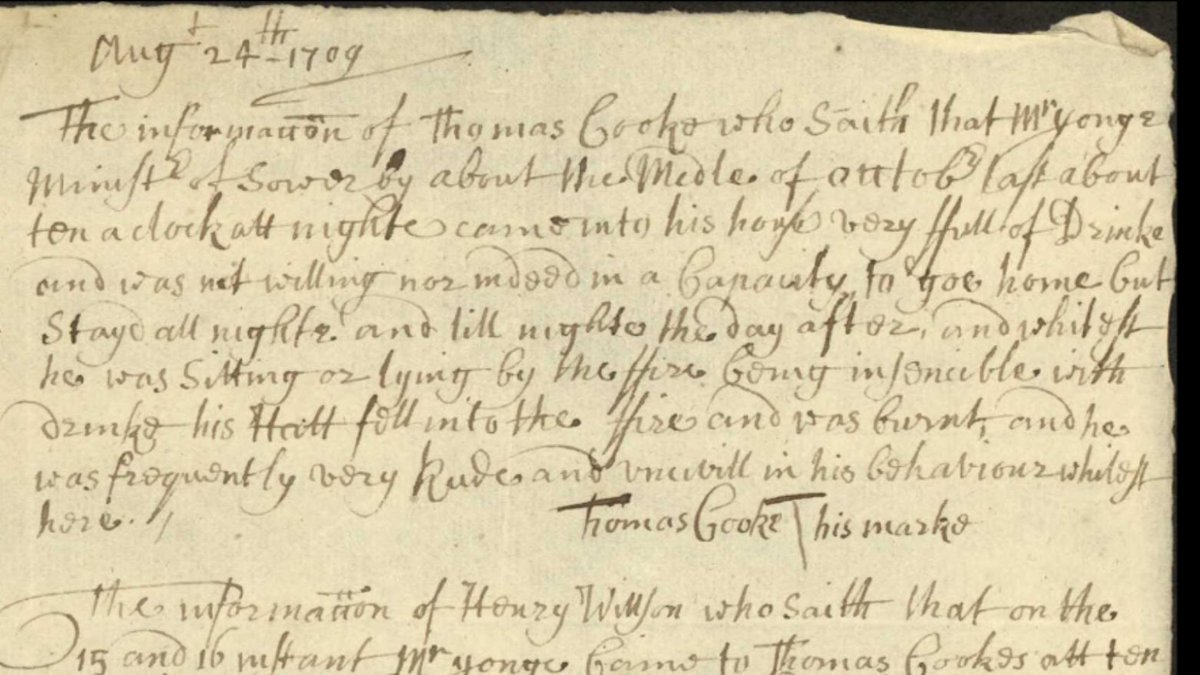 Augt 24th 1709
The informacon of Thomas Cooke who Saith that Mr yonge
Ministr of Sowerby about the Medle of octtobr last about
ten a clock att nighte came into his house very ffull of Drinke
and was not willing nor indeed in a Capacity to goe home but
Stayd all nighte and till nighte the day after, and whilest
he was Sitting or lying by the ffire being insencible with
drinke his Hatt fell into the ffire and was burnt, and he
was frequently very Rude and uncivill in his behaviour whilest
here.
Thomas Cooke his marke
The informacton of Henry Willson who saith that on the
15 and 16 instant Mr yonge Came to Thomas Cookes att ten